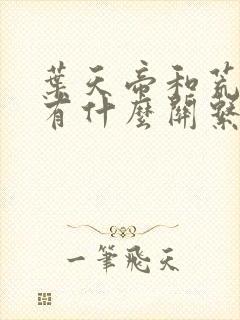 葉天帝和荒
有什麼關繫
一筆飛天